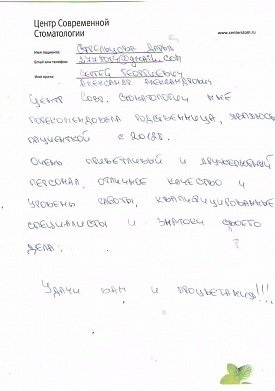 Центр Современной
Стоматологии
www.centerstom.ru
Имя пациента: Стрельцова Дарья
Email или телефон:
Имя врача: Сергей Георгиевич
Александр Александрович
Центр Совр. Стоматологии мне
порекомендовала родственница, являюсь
пациенткой с 2018г.
Очень приветливый и дружелюбный
персонал, отличное качество и
уровень работы, квалифицированные
специалисты и знатоки своего
дела.
Удачи вам и процветания!!!